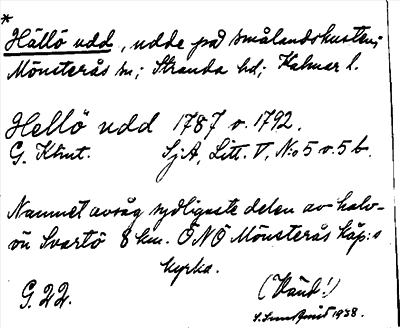 *
Hällö udd, udde på smålandskusten;
Mönsterås sn; Stranda hd; Kalmar l.
Hellö udd 1787 o. 1792.
G. Klint. SjA, Litt. V, N:o 5 o. 5 b.
Namnet avsåg sydligaste delen av halv-
ön Svartö 8 km. ÖNÖ Mönsterås köp:s
kyrka.
G. 22. (Vänd!)
1938.